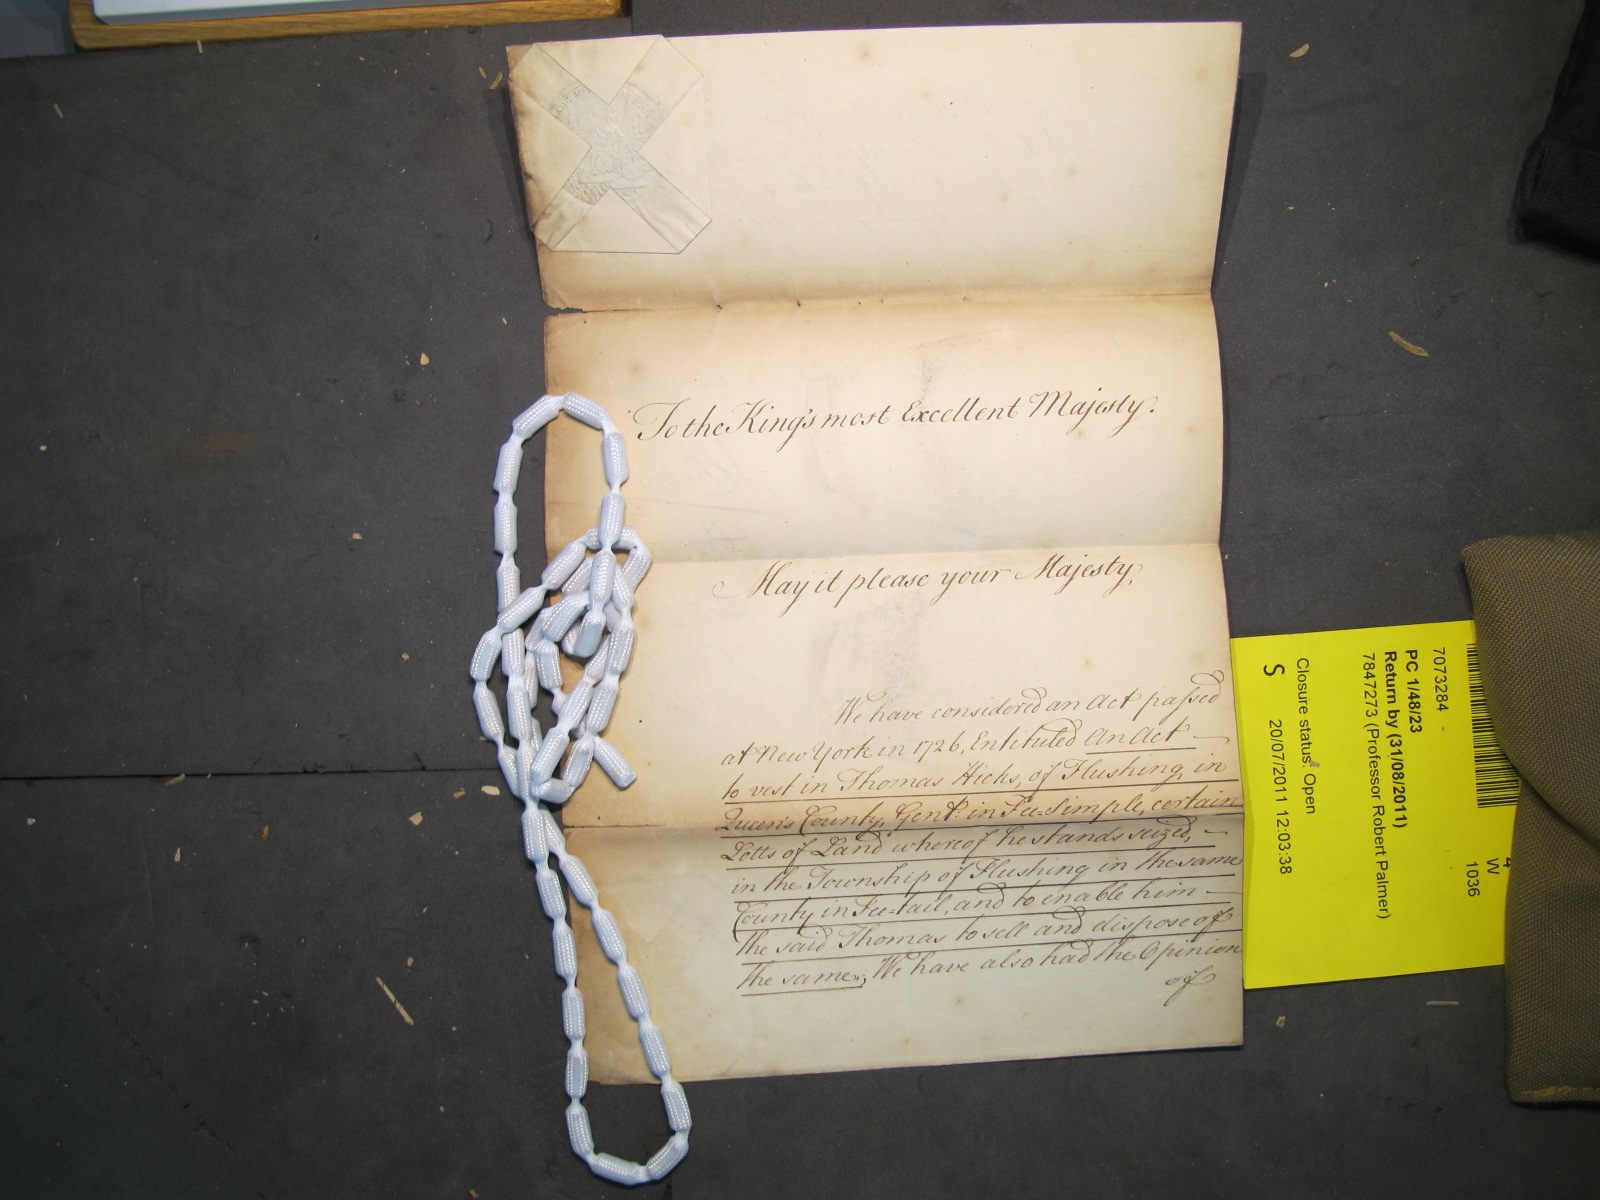 To the King's most Excellent Majesty.
May it please your Majesty,
We have considered an Act passed
at New York in 1726, Entituled An Act
to vest in Thomas Hicks, of Flushing, in
Queen's County, Gent. in Fee-Simple, certain
Lotts of Land whereof he stands seized,
in the Township of Flushing in the same
County in Fee-tail, and to enable him
the said Thomas to sell and dispose of
the same; We have also had the Opinion
of
7073284 -
PC 1/48/23
Return by (31/08/2011)
7847273 (Professor Robert Palmer)
Closure status: Open
S 20/07/2011 12:03:38
4
W
1036